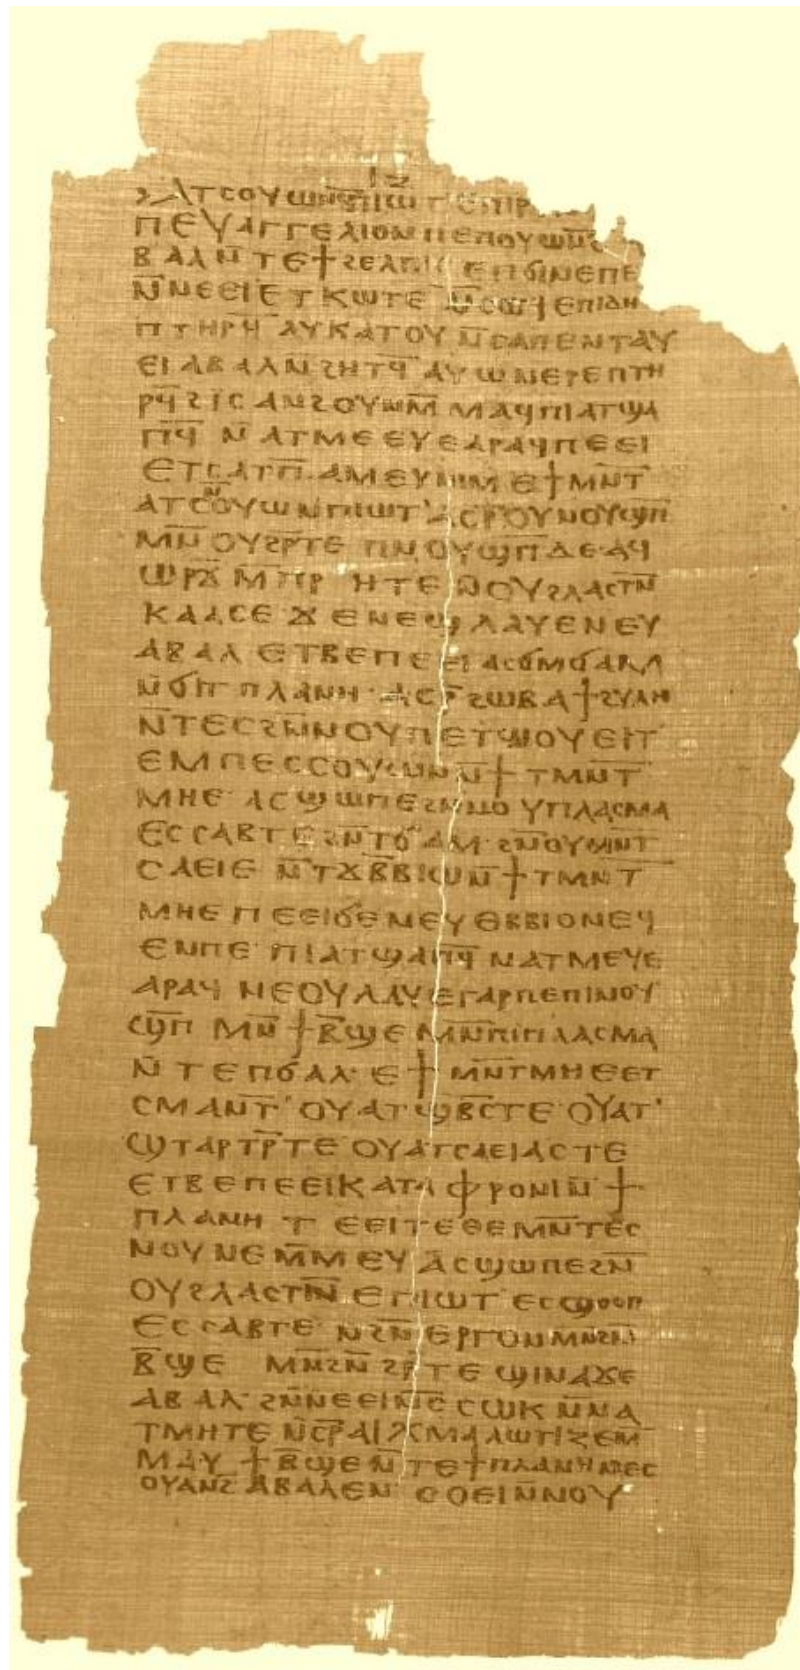 ⲓⲍ
ⲡⲉⲩⲁⲅⲅⲉⲗⲓⲟⲛ ⲡⲉ ⲡⲟⲩⲱⲛ̅ϩ
ⲃⲁⲗ ⲛ̅ⲧⲉ ϯϩⲉⲗⲡⲓⲥ ⲉⲡϭⲓⲛⲉ ⲡⲉ
ⲛ̅ⲛⲉⲉⲓ ⲉⲧⲕⲱⲧⲉ ⲛ̅ⲥⲱϥ ⲉⲡⲓⲇⲏ
ⲡⲧⲏⲣϥ̅ ⲁⲩⲕⲁⲧⲟⲩ ⲛ̅ⲥⲁ ⲡⲉⲛⲧⲁⲩ
ⲉⲓ ⲁⲃⲁⲗ ⲛ̅ϩⲏⲧϥ̅ ⲁⲩⲱ ⲛⲉⲣⲉⲡⲧⲏ
ⲣϥ̅ ϩⲓ̈ⲥⲁⲛϩⲟⲩⲛ ⲙ̅ⲙⲁϥ ⲡⲓⲁⲧϣⲁ
ⲡϥ̅ ⲛ̅ⲁⲧⲙⲉⲉⲩⲉ ⲁⲣⲁϥ ⲡⲉⲉⲓ
ⲉⲧⲥⲁⲧⲡ̅ ⲁⲙⲉⲩ ⲛⲓⲙ ⲉϯⲙⲛ̅ⲧ
ⲁⲧⲥⲟⲩⲱⲛ ⲡⲓⲱⲧ ⲁⲥⲣ̅ⲟⲩⲛⲟⲩϣⲡ̅
ⲙⲛ̅ ⲟⲩϩⲣ̅ⲧⲉ ⲡⲛⲟⲩϣⲡ̅ ⲇⲉ ⲁϥ
ⲱⲣϫ̅ ⲙ̅ⲡⲣⲏⲧⲉ ⲛ̅ⲟⲩϩⲗⲁⲥⲧⲛ̅
ⲕⲁⲁⲥⲉ ϫⲉ ⲛⲉϣ ⲗⲁⲩⲉ ⲛⲉⲩ
ⲁⲃⲁⲗ ⲉⲧⲃⲉ ⲡⲉⲉⲓ ⲁⲥϭⲙϭⲁⲙ
ⲛ̅ϭⲓ ϯⲡⲗⲁⲛⲏ ⲁⲥⲣ̅ϩⲱⲃ ⲁϯϩⲩⲗⲏ
ⲛ̅ⲧⲉⲥ ϩⲛ̅ⲛⲟⲩⲡⲉⲧϣⲟⲩⲉⲓⲧ
ⲉⲙⲡⲉⲥⲥⲟⲩⲱⲛ ⲛ̅ϯⲧⲙⲛ̅ⲧ
ⲙⲏⲉ ⲁⲥϣⲱⲡⲉ ϩⲛ̅ⲛⲟⲩⲡⲗⲁⲥⲙⲁ
ⲉⲥⲥⲁⲃⲧⲉ ϩⲛ̅ ⲧϭⲁⲙ ϩⲛ̅ⲟⲩⲙⲛ̅ⲧ
ⲥⲁⲉⲓⲉ ⲛ̅ⲧϫⲃ̅ⲃⲓⲱ ⲛ̅ϯⲧⲙⲛ̅ⲧ
ⲙⲏⲉ ⲡⲉⲉⲓ ϭⲉ ⲛⲉⲩⲑⲃⲃⲓⲟ ⲛⲉϥ
ⲉⲛ ⲡⲉ ⲡⲓⲁⲧϣⲁⲡϥ̅ ⲛⲁⲧⲙⲉⲩⲉ
ⲁⲣⲁϥ ⲛⲉⲟⲩⲗⲁⲩⲉ ⲅⲁⲣ ⲡⲉ ⲡⲓⲛⲟⲩ
ϣⲡ̅ ⲙⲛ̅ ϯⲃ̅ϣⲉ ⲙⲛ̅ ⲡⲓⲡⲗⲁⲥⲙⲁ
ⲛ̅ⲧⲉ ⲡϭⲁⲗ ⲉϯⲙⲛ̅ⲧⲙⲏⲉ ⲉⲧ
ⲥⲙⲁⲛ̅ⲧ ⲟⲩⲁⲧϣⲃ̅ⲥⲧⲉ ⲟⲩⲁⲧ
ϣⲧⲁⲣⲧⲣ̅ⲧⲉ ⲟⲩⲁⲧⲥⲁⲉⲓⲁⲥⲧⲉ
ⲉⲧⲃⲉ ⲡⲉⲉⲓ ⲕⲁⲧⲁⲫⲣⲟⲛⲓ ⲛ̅ϯ
ⲡⲗⲁⲛⲏ ⲧⲉⲉⲓ ⲧⲉ ⲑⲉ ⲙⲛ̅ⲧⲉⲥ
ⲛⲟⲩⲛⲉ ⲙ̅ⲙⲉⲩ ⲁⲥϣⲱⲡⲉ ϩⲛ̅
ⲟⲩϩⲗⲁⲥⲧⲛ̅ ⲉⲡⲓⲱⲧ ⲉⲥϣⲟⲟⲡ
ⲉⲥⲥⲁⲃⲧⲉ ⲛ̅ϩⲛ̅ⲉⲣⲅⲟⲛ ⲙⲛ̅ϩⲛ̅
ⲃ̅ϣⲉ ⲙⲛ̅ϩⲛ̅ϩⲣ̅ⲧⲉ ϣⲓⲛⲁ ϫⲉ
ⲁⲃⲁⲗ ϩⲛ̅ⲛⲉⲉⲓ ⲛ̅ⲥⲥⲱⲕ ⲛ̅ⲛⲁ
ⲧⲙⲏⲧⲉ ⲛ̅ⲥⲣ̅ⲁⲓⲭⲙⲁⲗⲱⲧⲓⲍⲉ ⲙ̅
ⲙⲁⲩ ϯⲃ̅ϣⲉ ⲛ̅ⲧⲉ ϯⲡⲗⲁⲛⲏ ⲛⲉⲥ
ⲟⲩⲁⲛϩ̅ ⲁⲃⲁⲗ ⲉⲛ ⲥⲟⲉⲓ ⲛ̅ⲛⲟⲩ